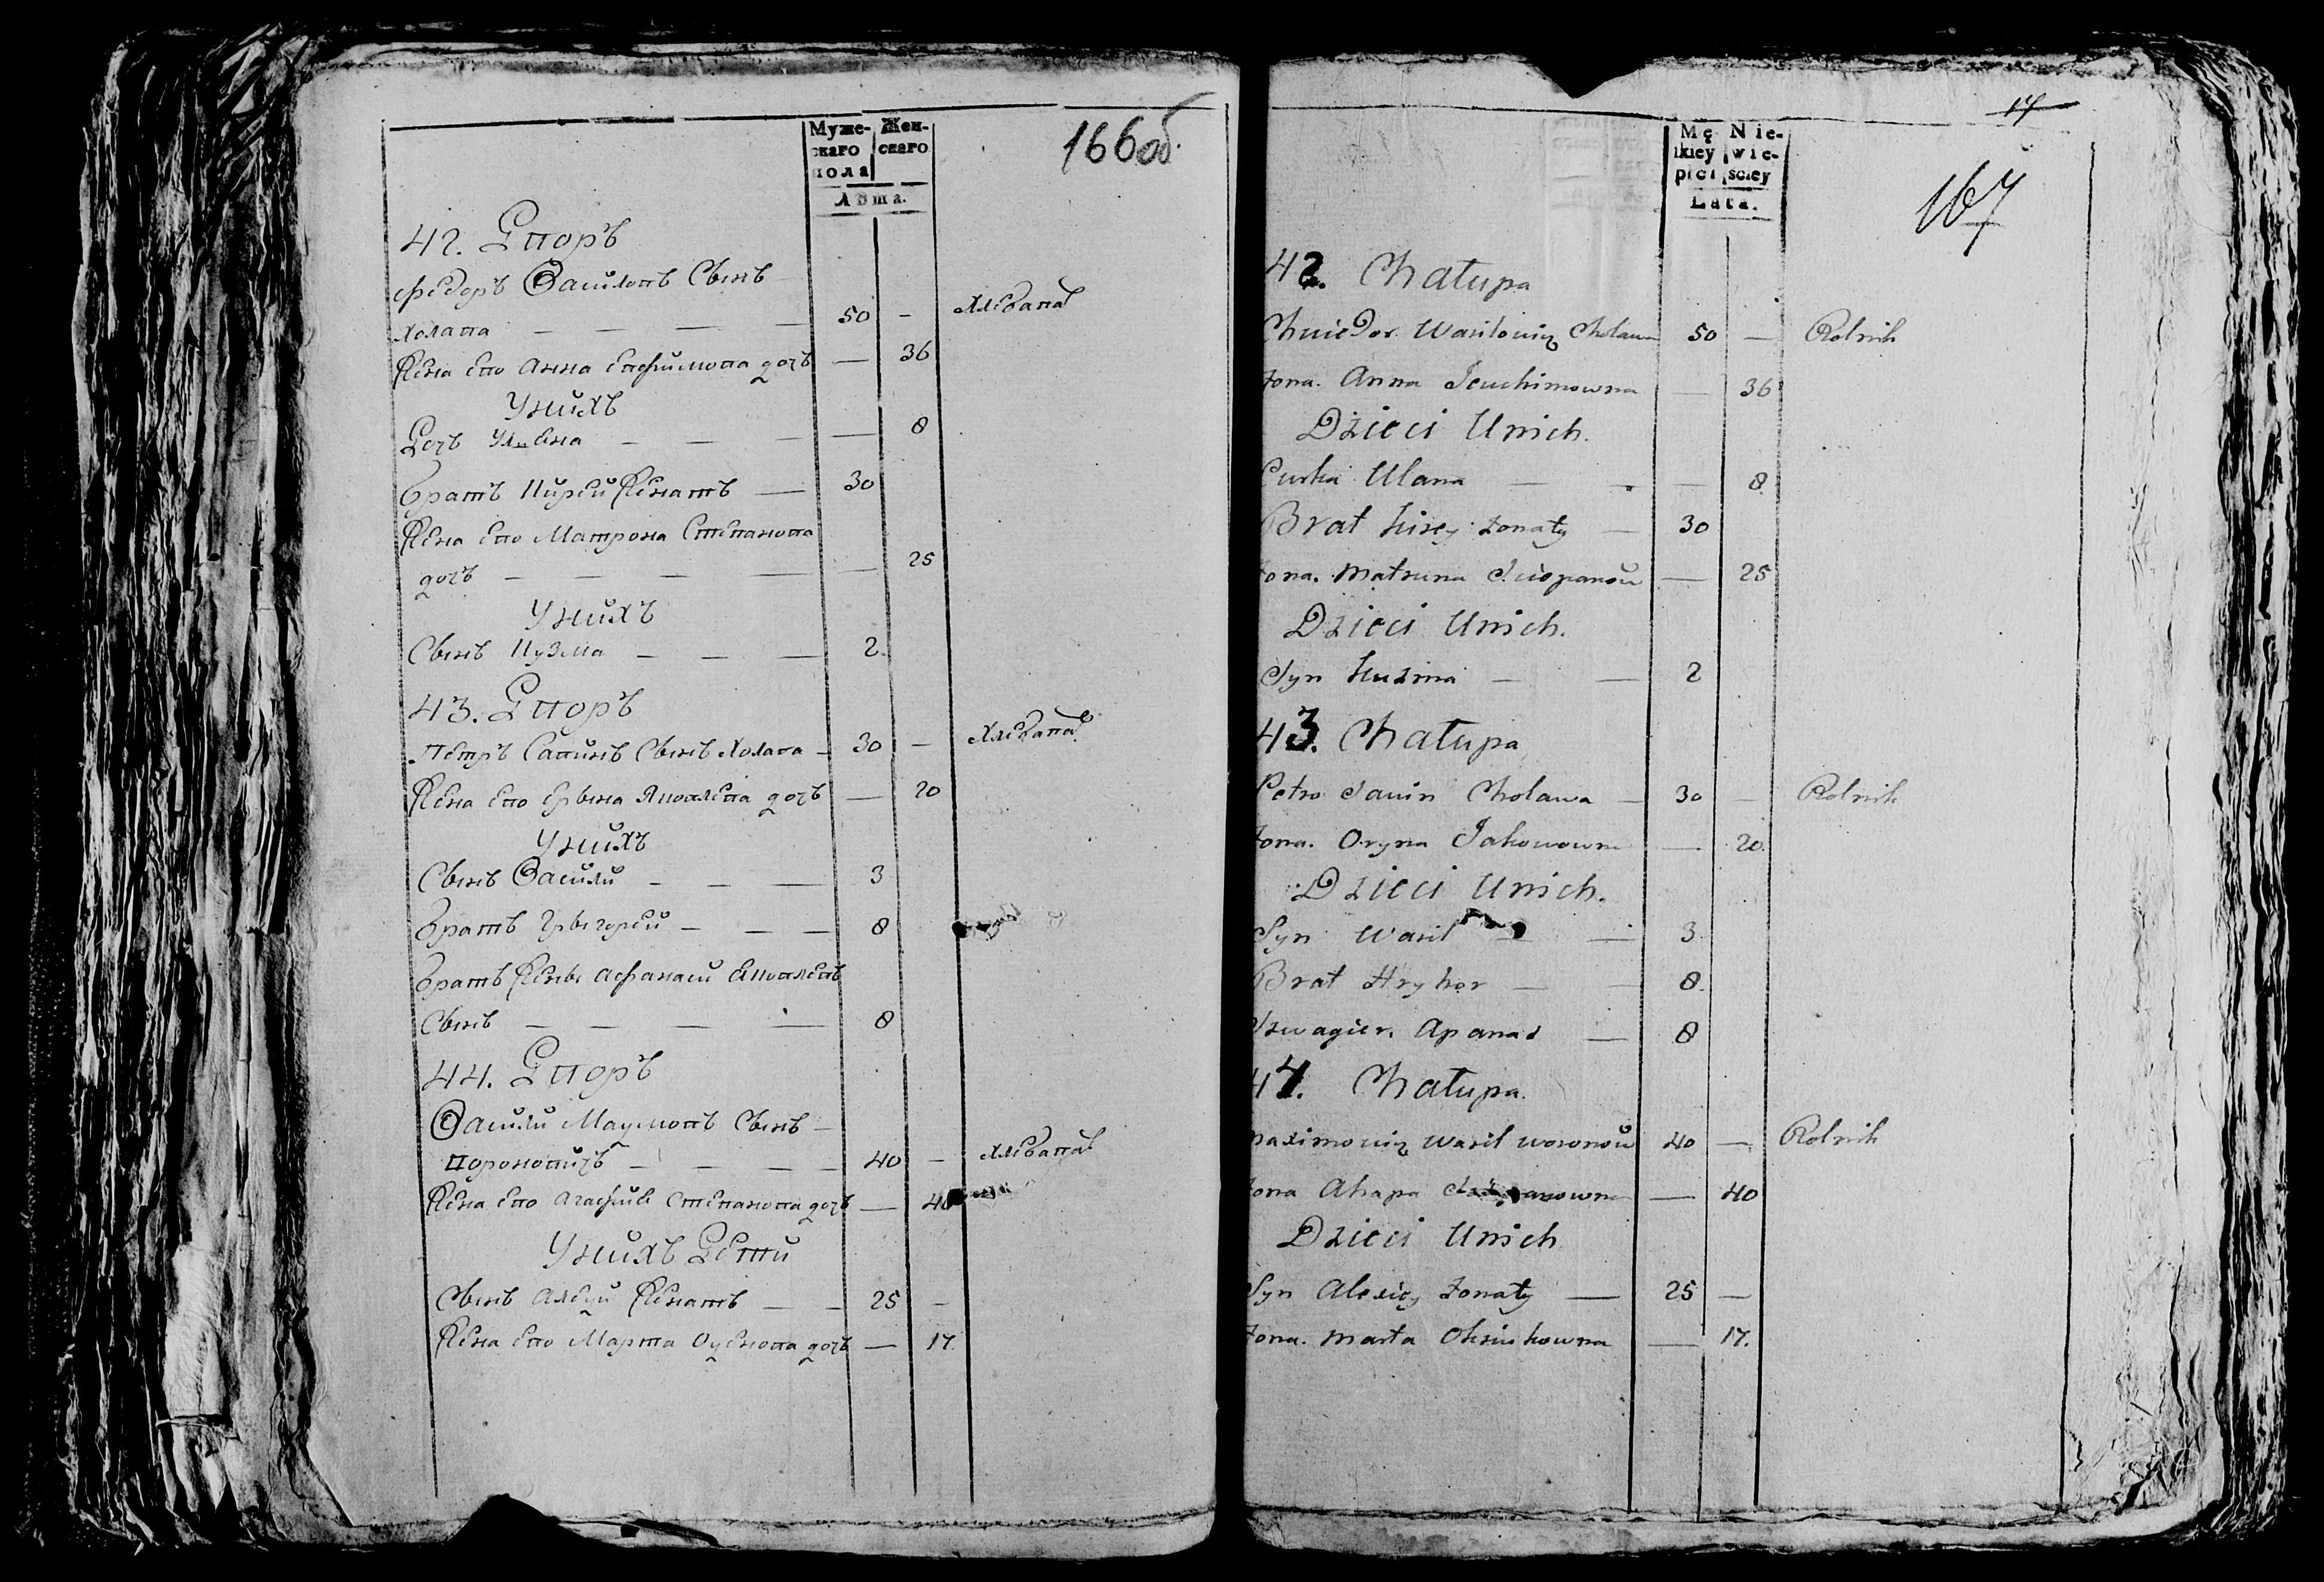 Муже- Жен-
скаго скаго
пола
Лѣта.
166 об.
42. Дворъ
Федоръ Василовъ Сынъ
Холава — — — — 50 — Хлебапа
Жена его Анна Евфимова дочь — 36
У нихъ
Дочь Ульена — — — — 8
Братъ Кирей Женатъ — 30
Жена его Матрона Степанова
дочь — — — — — 25
У нихъ
Сынъ Кузма — — — 2
43. Дворъ
Петръ Савинъ Сынъ Холава — 30 — Хлебапа
Жена его Ерына Яковлева дочь — 20
У нихъ
Сынъ Васили — — — 3
Братъ Грыгорей — — — 8
Братъ Жены Афанаси Яковлевъ
Сынъ — — — — 8
44. Дворъ
Васили Мацмовъ Сынъ —
Вороновичъ — — — — 40 — Хлебапа
Жена его Агафия Степанова дочь — 40
У нихъ Дети
Сынъ Алецй Женатъ — — 25 —
Жена его Марта Оценова дочь — 17.
Mę Nie-
skiey wie-
płci sciey
Lata.
14
167
42. Chałupa
Chwiedor Wasilowicz Cholawa 50 — Rolnik
Żona. Anna Jeuchimowna — 36
Dzieci Unich.
Curka Ulana — — — 8.
Brat Kirey Żonaty — 30
Żona. Matruna Sciopanow — 25
Dzieci Unich.
Syn Kuzma — — 2
43. Chałupa
Petro Sawin Cholawa — 30 — Rolnik
Żona. Oryna Jakowowna — 20.
Dzieci Unich.
Syn Wasil — — 3.
Brat Hryhor — — 8.
Szwagier. Apanas — 8
44. Chałupa.
Maximowicz Wasil Woronow 40 — Rolnik
Żona Ahapa — 40
Dzieci Unich
Syn Alexiey Żonaty — 25 —
Żona. Marta — 17.